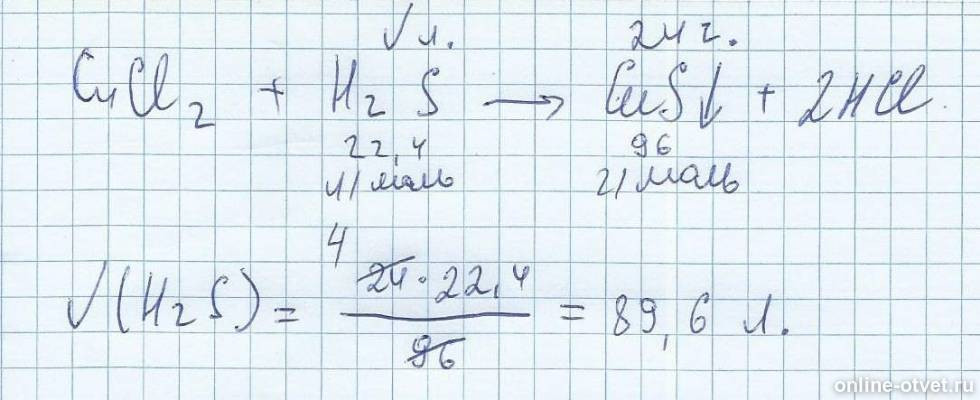 V л. 24 г.
CuCl2 + H2S → CuS↓ + 2HCl
22,4 96
л/моль г/моль
4
V(H2S) = 24 · 22,4 / 96 = 89,6 л.
online-otvet.ru